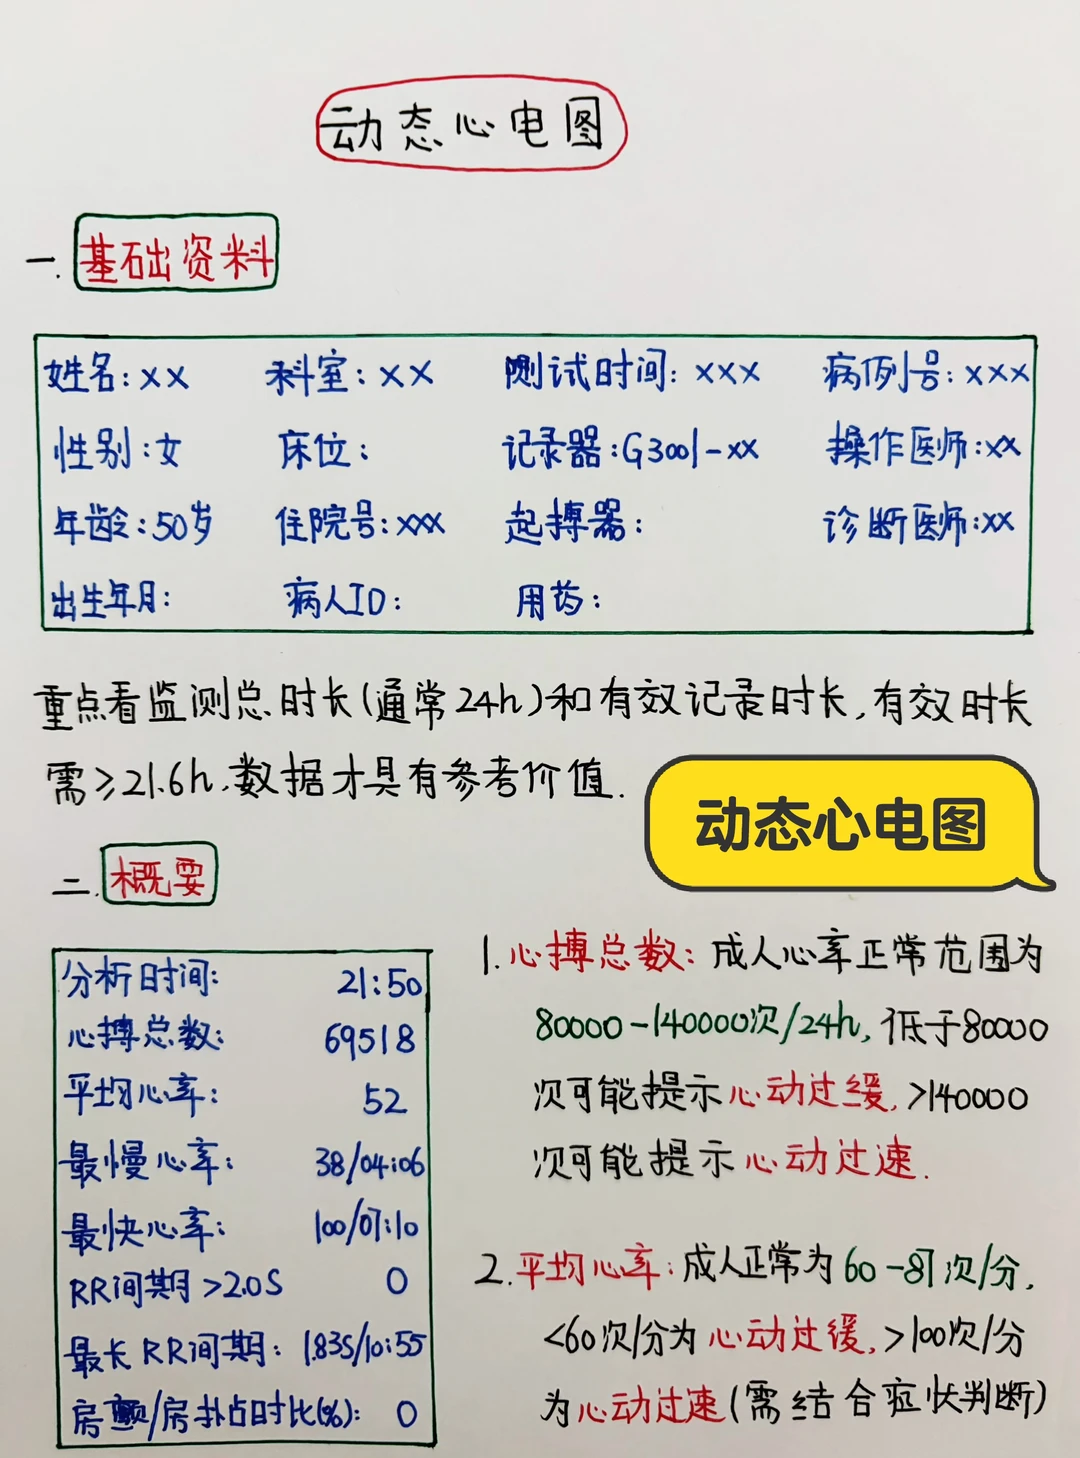 动态心电图
一.基础资料
姓名:xx 科室:xx 测试时间:xxx 病例号:xxx
性别:女 床位: 记录器:G3001-xx 操作医师:xx
年龄:50岁 住院号:xxx 起搏器: 诊断医师:xx
出生年月: 病人ID: 用药:
重点看监测总时长(通常24h)和有效记录时长,有效时长
需≥21.6h,数据才具有参考价值.
动态心电图
二.概要
分析时间: 21:50
心搏总数: 69518
平均心率: 52
最慢心率: 38/04:06
最快心率: 100/07:10
RR间期>2.0S 0
最长RR间期: 1.83S/10:55
房颤/房扑占时比(%): 0
1.心搏总数:成人心率正常范围为
80000-140000次/24h,低于80000
次可能提示心动过缓,>140000
次可能提示心动过速.
2.平均心率:成人正常为60-87次/分,
<60次/分为心动过缓,>100次/分
为心动过速(需结合症状判断)